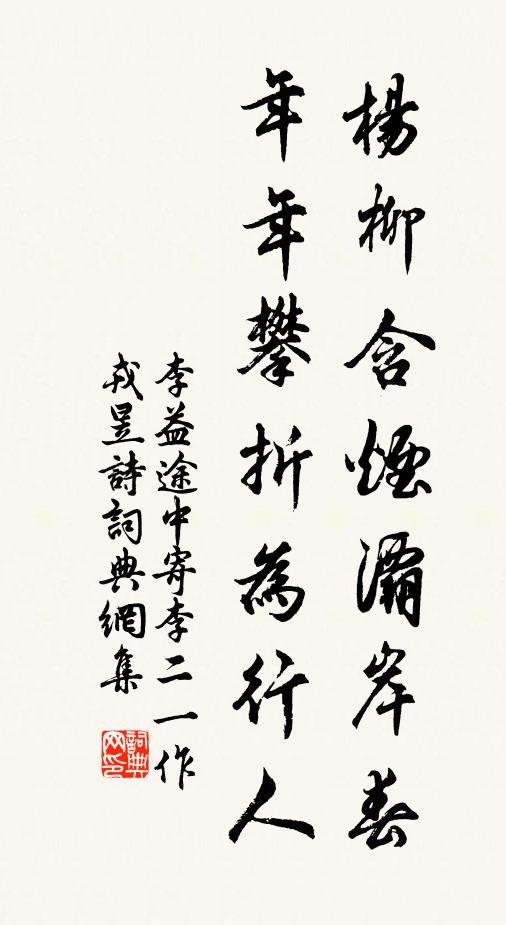 楊柳含煙灞岸春
年年攀折為行人
李益途中寄李二一作
戎昱詩詞典網集
詞典網印